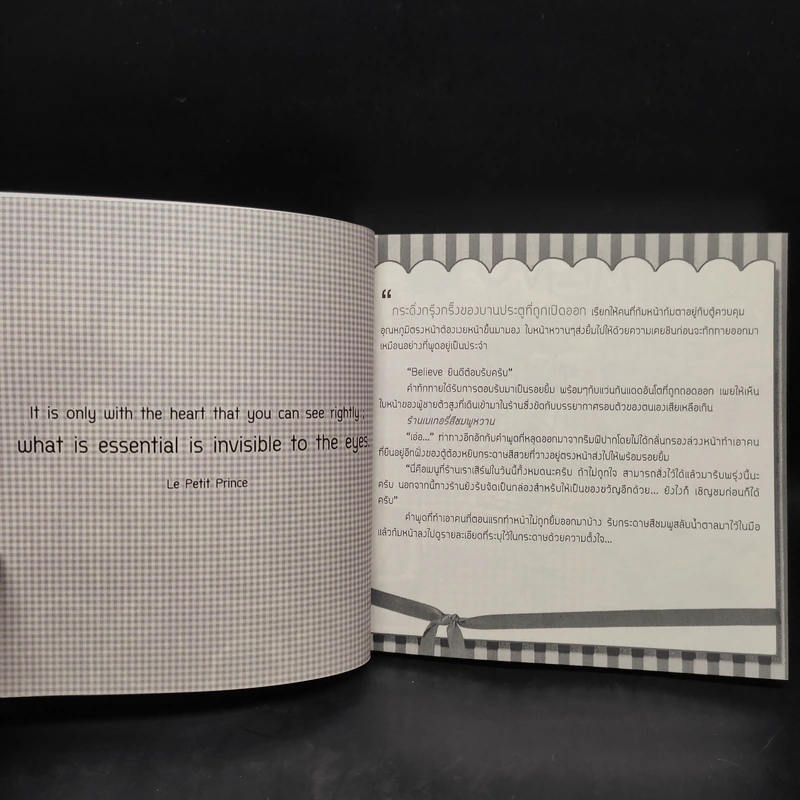 It is only with the heart that you can see rightly;
what is essential is invisible to the eyes.
Le Petit Prince
“
กระดิ่งกรุ๊งกริ๊งของบานประตูที่ถูกเปิดออก เรียกให้คนที่ก้มหน้าก้มตาอยู่กับตู้ควบคุม
อุณหภูมิตรงหน้าต้องเงยหน้าขึ้นมามอง ใบหน้าหวานๆส่งยิ้มไปให้ด้วยความเคยชินก่อนจะทักทายออกมา
เหมือนอย่างที่พูดอยู่เป็นประจำ
“Believe ยินดีต้อนรับครับ”
คำทักทายได้รับการตอบรับมาเป็นรอยยิ้ม พร้อมๆกับแว่นกันแดดอันโตที่ถูกถอดออก เผยให้เห็น
ใบหน้าของผู้ชายตัวสูงที่เดินเข้ามาในร้านซึ่งขัดกับบรรยากาศรอบตัวของตนเองเสียเหลือเกิน
ร้านเบเกอรี่สีชมพูหวาน
“เอ่อ...” ท่าทางอึกอักกับคำพูดที่หลุดออกมาจากริมฝีปากโดยไม่ได้กลั่นกรองล่วงหน้าทำเอาคน
ที่ยืนอยู่อีกฝั่งของตู้ต้องหยิบกระดาษสีสวยที่วางอยู่ตรงหน้าส่งไปให้พร้อมรอยยิ้ม
“นี่คือเมนูที่ร้านเราเสิร์ฟในวันนี้ทั้งหมดนะครับ ถ้าไม่ถูกใจ สามารถสั่งไว้ได้แล้วมารับพรุ่งนี้นะ
ครับ นอกจากนี้ทางร้านยังรับจัดเป็นกล่องสำหรับให้เป็นของขวัญอีกด้วย... ยังไงก็ เชิญชมก่อนก็ได้
ครับ”
คำพูดที่ทำเอาคนที่ตอนแรกทำหน้าไม่ถูกยิ้มออกมาบ้าง รับกระดาษสีชมพูสลับน้ำตาลมาไว้ในมือ
แล้วก้มหน้าลงไปดูรายละเอียดที่ระบุไว้ในกระดาษด้วยความตั้งใจ...